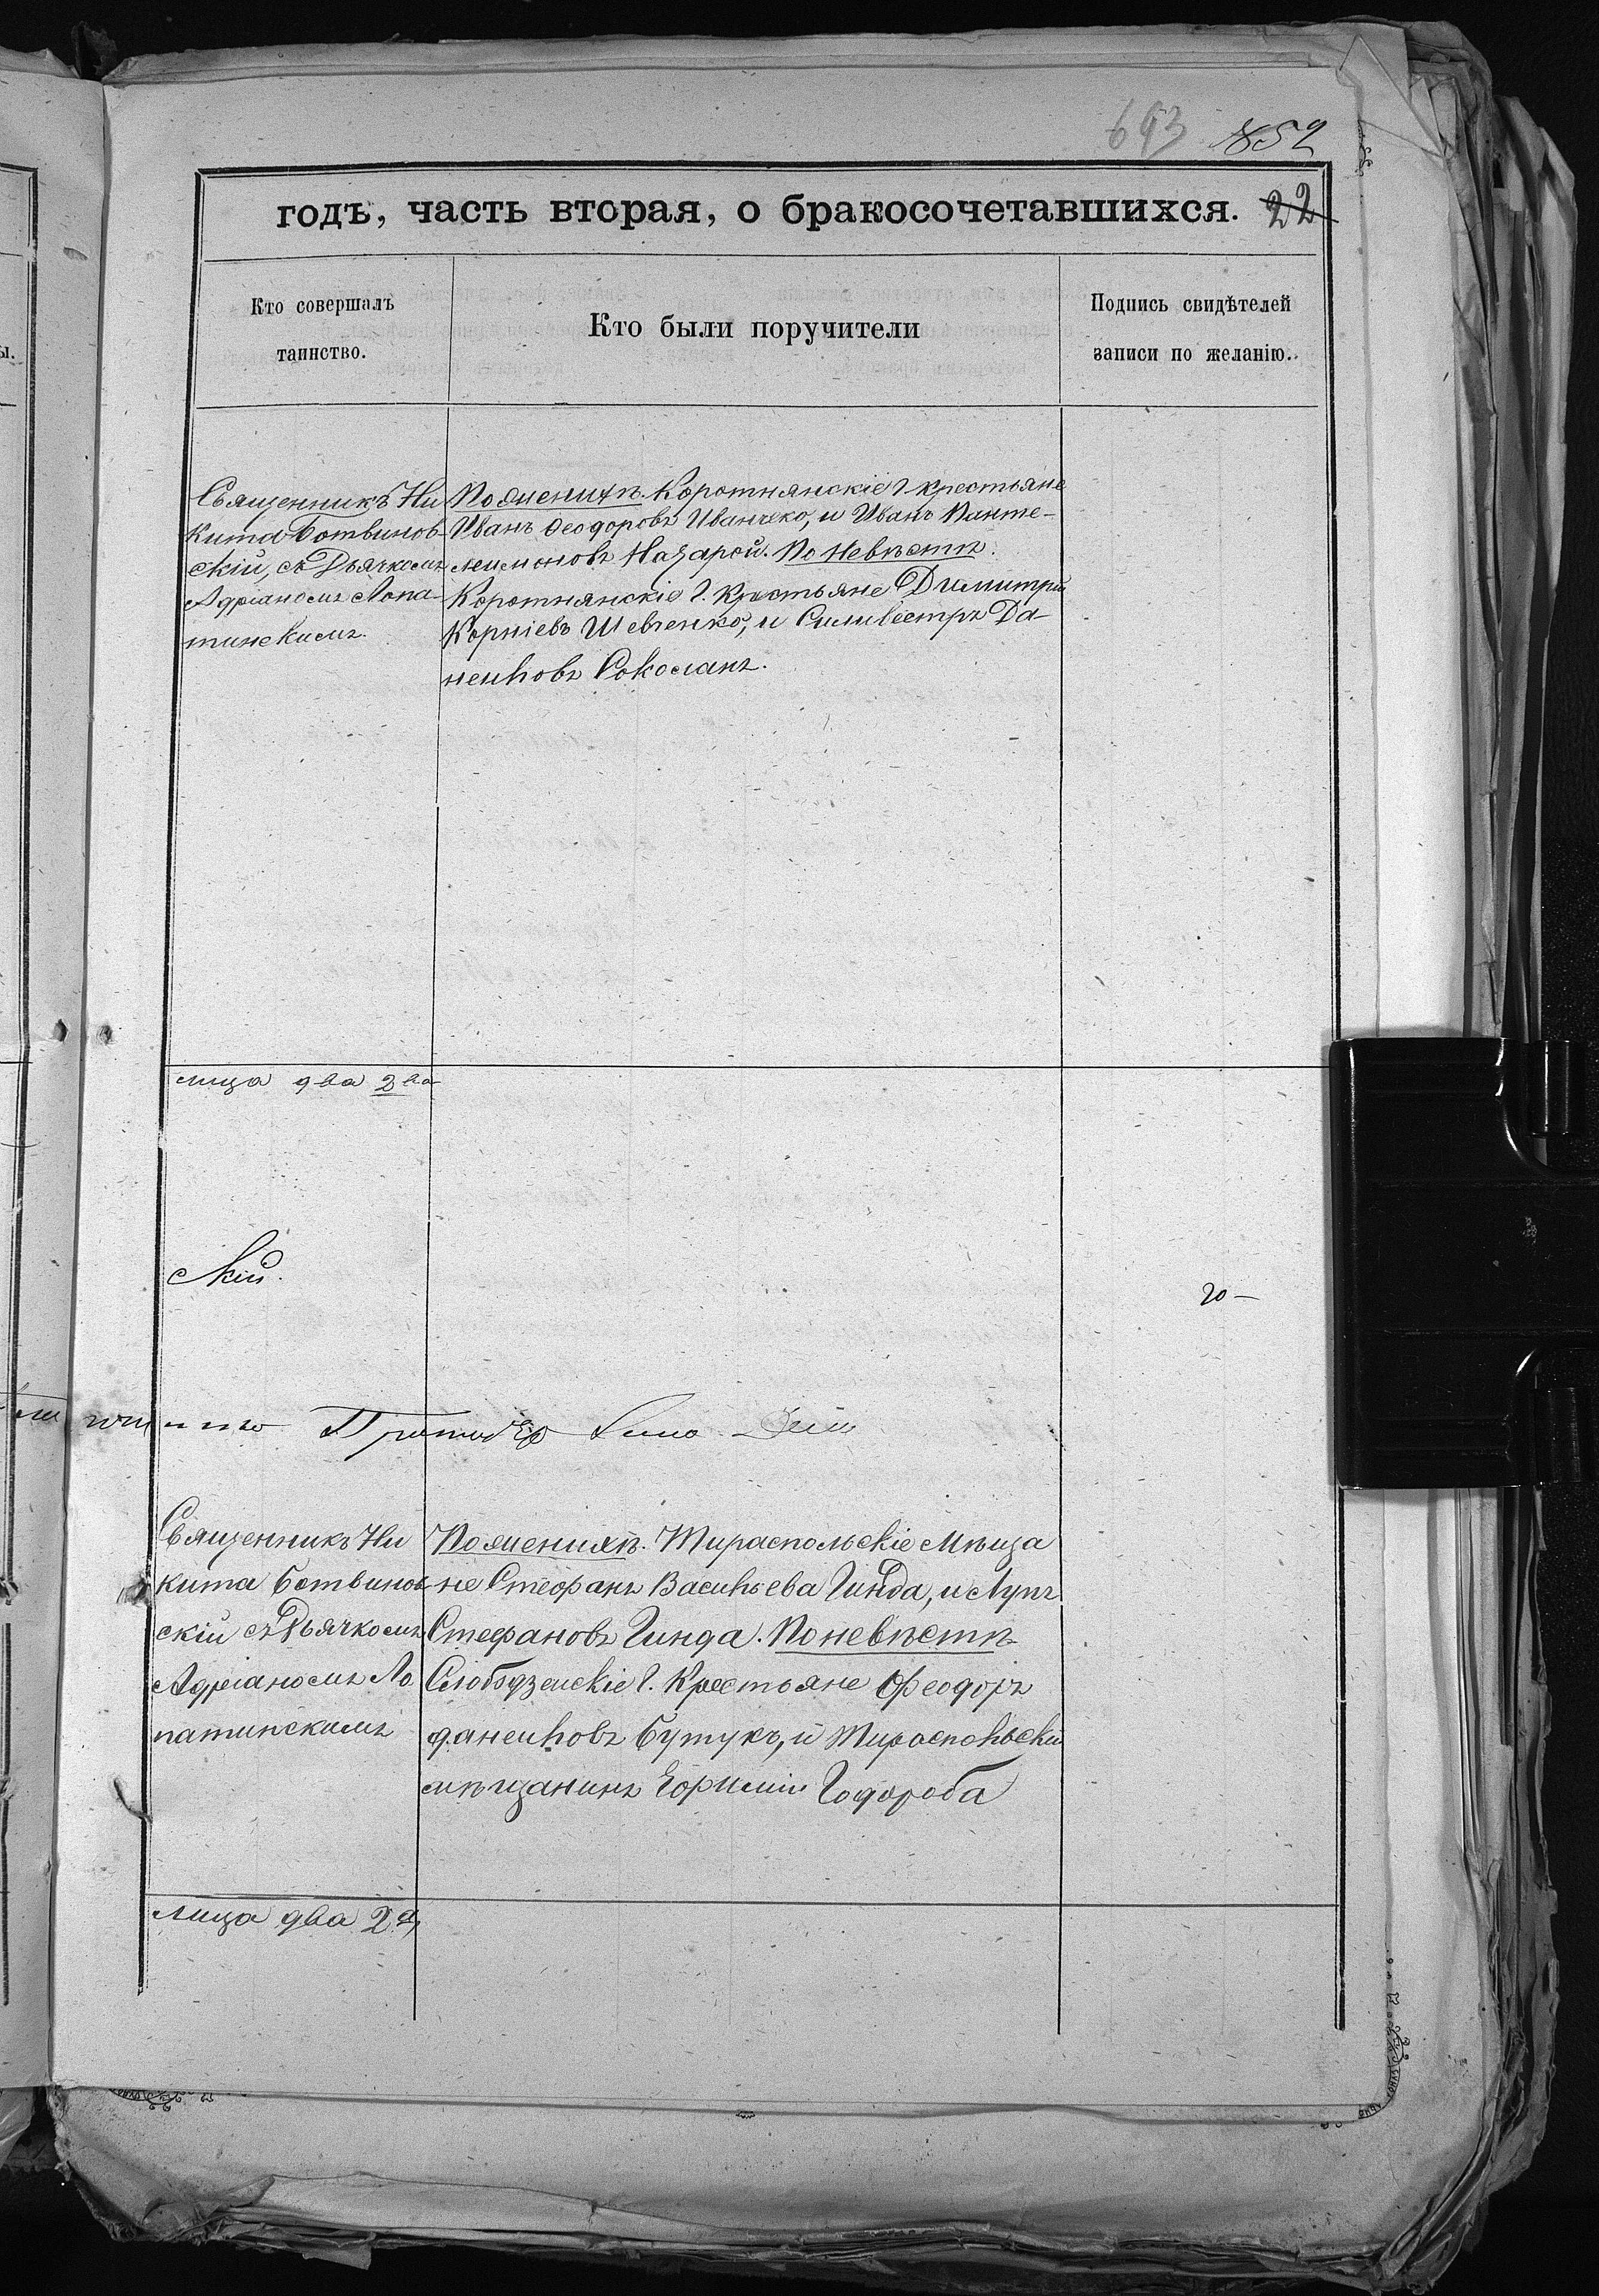 693 852
годъ, часть вторая, о бракосочетавшихся. 22
Кто совершалъ
таинство.
Кто были поручители
Подпись свидѣтелей
записи по желанію.
Священникъ Ни
кита Ботвинов-
скій, съ Дьячкомъ
Адріаномъ Лопа-
тинскимъ.
По женихѣ. Коротнянскіе 1. крестьяне
Иванъ Феодоровъ Иванчеко, и Иванъ Панте-
леимоновъ Назарой. По невѣстѣ.
Коротнянскіе 1. крестьяне Димитрій
Корніевъ Шевченко, и Сильвестръ Да-
ниловъ Соколанъ.
лица два 2ва
скій.
20 —
Священникъ Ни
кита Ботвинов-
скій съ Дьячкомъ
Адріаномъ Ло
патинскимъ
По женихѣ. Тираспольскіе Мѣща
не Стефанъ Васильева Гинда, и Лупъ
Стефановъ Гинда. По невѣстѣ
Слободзейскіе 1. Крестьяне Феодоръ
Даниловъ Бутукъ, и Тираспольскій
мѣщанинъ Тодороба
лица два 2